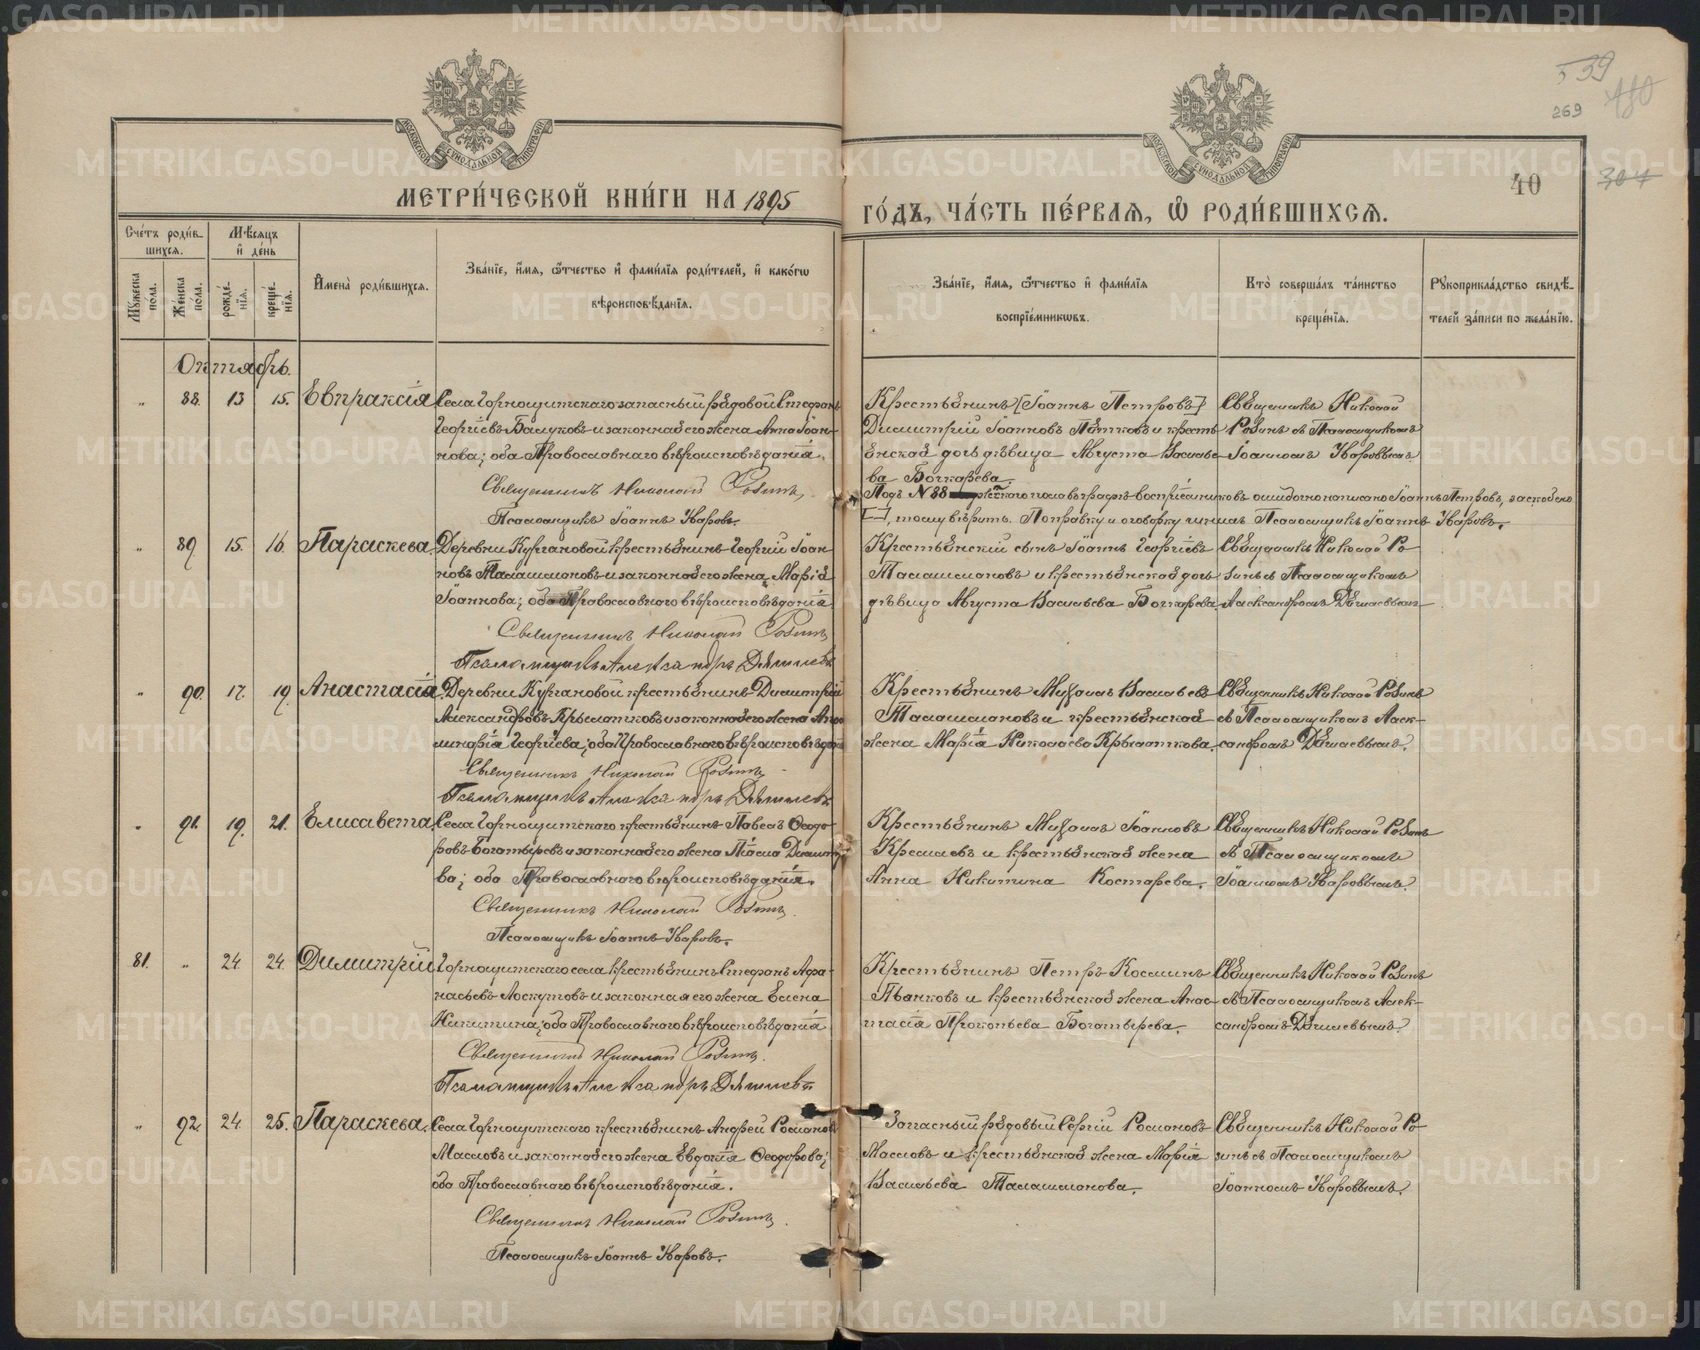 539
269
180
304
40
МОСКОВСКОЙ СѴНОДАЛЬНОЙ ТИПОГРАФІИ
МОСКОВСКОЙ СѴНОДАЛЬНОЙ ТИПОГРАФІИ
МЕТРИ́ЧЕСКОЙ КНИ́ГИ НА 1895
ГО́ДЪ, ЧА́СТЬ ПЕ́РВАѦ, Ѽ РОДИ́ВШИХСѦ.
Сче́тъ роди́вшихся.
Мужеска по́ла.
Же́нска по́ла.
Мѣ́сяцъ и҆ де́нь
рожде́нїя.
креще́нїя.
И҆мена̀ роди́вшихся.
Зва́нїе, и҆́мя, ѻ҆́тчество и҆ фами́лїя роди́телей, и҆ како́гѡ вѣроисповѣ́данїя.
Зва́нїе, и҆́мя, ѻ҆́тчество и҆ фами́лїя воспрїе́мникѡвъ.
Кто̀ соверша́лъ та́инство креще́нїя.
Рꙋкоприкла́дство свидѣ́телей за́писи по жела́нїю.
Октябрь.
„ 88. 13 15. Евпраксія
Села Горнощитскаго запасный рядовой Стефанъ
Георгіевъ и законная его жена Анна Іоан-
нова; оба Православнаго вѣроисповѣданія.
Священникъ Николай
Псаломщикъ Іоаннъ Уваровъ.
Крестьянинъ [Іоаннъ Петровъ]
Димитрій Іоанновъ Пѣтковъ и кресть-
янская дочь дѣвица Августа Василье-
ва Бочкарева.
Священникъ Николай
съ Псаломщикомъ
Іоанномъ Уваровымъ.
Подъ № 88 женскаго пола въ графѣ воспріемниковъ ошибочно написано Іоаннъ Петровъ, заскоблено
[—], тому вѣрить. Поправку и оговорку чинилъ Псаломщикъ Іоаннъ Уваровъ.
„ 89 15. 16. Параскева.
Деревни Кургановой крестьянинъ Георгій Іоан-
новъ Талашмановъ и законная его жена Марія
Іоаннова; оба Православнаго вѣроисповѣданія
Священникъ Николай
Псаломщикъ Александръ Дягилевъ
Крестьянскій сынъ Іоаннъ Георгіевъ
Талашмановъ и крестьянская дочь
дѣвица Августа Васильева Бочкарева
Священникъ Николай
съ Псаломщикомъ
Александромъ Дягилевымъ
„ 90. 17. 19. Анастасія
Деревни Кургановой крестьянинъ Димитрій
Александровъ Крылатковъ и законная его жена Апол-
линарія Георгіева; оба Православнаго вѣроисповѣданія
Священникъ Николай
Псаломщикъ Александръ Дягилевъ
Крестьянинъ Михаилъ Васильевъ
Талашмановъ и крестьянская
жена Марія Николаева Крылаткова.
Священникъ Николай
съ Псаломщикомъ Алек-
сандромъ Дягилевымъ.
„ 91. 19. 21. Елисавета.
Села Горнощитскаго крестьянинъ Павелъ Ѳеодо-
ровъ Богатыревъ и законная его жена
ва; оба Православнаго вѣроисповѣданія.
Священникъ Николай
Псаломщикъ Іоаннъ Уваровъ.
Крестьянинъ Михаилъ Іоанновъ
и крестьянская жена
Анна Никитина Костарева.
Священникъ Николай
съ Псаломщикомъ
Іоанномъ Уваровымъ.
81. „ 24 24. Димитрій
Горнощитскаго села крестьянинъ Стефанъ Афа-
насьевъ Лоскутовъ и законная его жена Елена
Никитина; оба Православнаго вѣроисповѣданія
Священникъ Николай
Псаломщикъ Александръ Дягилевъ
Крестьянинъ Петръ Косминъ
Пьянковъ и крестьянская жена Анас-
тасія Прокопьева Богатырева.
Священникъ Николай
съ Псаломщикомъ Алек-
сандромъ Дягилевымъ.
„ 92. 24 25. Параскева.
Села Горнощитскаго крестьянинъ Андрей Романовъ
Масловъ и законная его жена Евдокія Ѳеодорова;
оба Православнаго вѣроисповѣданія.
Священникъ Николай
Псаломщикъ Іоаннъ Уваровъ.
Запасный рядовый Сергій Романовъ
Масловъ и крестьянская жена Марія
Васильева Талашманова.
Священникъ Николай
съ Псаломщикомъ
Іоанномъ Уваровымъ.
METRIKI.GASO-URAL.RU